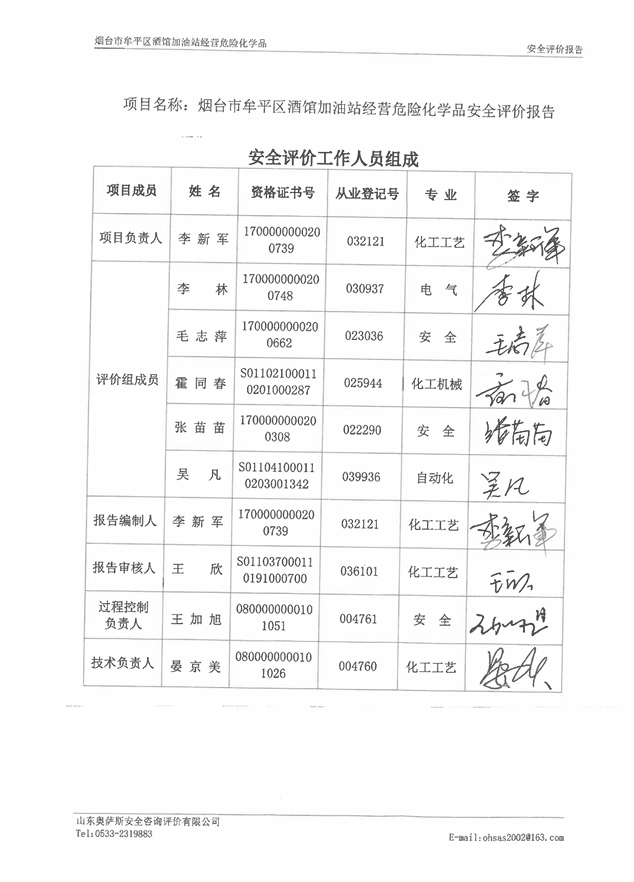 烟台市牟平区酒馆加油站经营危险化学品
安全评价报告
项目名称：烟台市牟平区酒馆加油站经营危险化学品安全评价报告
安全评价工作人员组成
项目成员 姓名 资格证书号 从业登记号 专业 签字
项目负责人 李新军 170000000020 0739 032121 化工工艺 李新军
评价组成员
李林 170000000020 0748 030937 电气 李林
毛志萍 170000000020 0662 023036 安全
霍同春 S01102100011 0201000287 025944 化工机械
张苗苗 170000000020 0308 022290 安全 张苗苗
吴凡 S01104100011 0203001342 039936 自动化 吴凡
报告编制人 李新军 170000000020 0739 032121 化工工艺 李新军
报告审核人 王欣 S01103700011 0191000700 036101 化工工艺 王欣
过程控制负责人 王加旭 080000000010 1051 004761 安全
技术负责人 晏京美 080000000010 1026 004760 化工工艺
山东奥萨斯安全咨询评价有限公司
Tel:0533-2319883
E-mail:ohsas2002@163.com